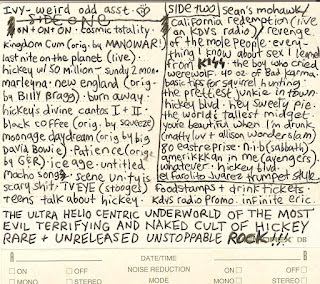 IVY-weird odd asst.
SIDE ONE
ON+ON+ON · cosmic totality.
Kingdom Cum (orig. by MANOWAR)
last nite on the planet (live).
hickey w/ 50 million - sunday 2 more.
marleyna · new england (orig
by BILLY BRAGG) · burn away.
hickey's divine cantos I + II
black coffee (orig. by Squeeze)
moonage daydream (orig by big
david Bowie) · Patience (orig
by G&R) · ice age · untitled.
macho song · scene unity is
scary shit · TV EYE (stooges)
teens talk about hickey
SIDE TWO
sean's mohawk/
California redemption (live
on KDVS radio) revenge
of the mole people · every-
thing I know about sex I learned
from KISS · the boy who cried
werewolf · 40 oz. of Bad Karma.
basic tips for squirrel hunting
the prettiest junkie in town
hickey blvd · hey sweety pie.
the world's tallest midget.
you're beautiful when I'm drunk.
(matty luv + alison wonder[s]am)
80 eastrerprise · N·I·B (sabbath)
amerikkkan in me (avengers).
whatever · hickey blvd.
el pasolito Juarez trumpet style.
foodstamps + drink tickets.
KDVS radio promo. infinite eric.
THE ULTRA HELIO CENTRIC UNDERWORLD OF THE MOST
EVIL TERRIFYING AND NAKED CULT OF HICKEY
RARE + UNRELEASED UNSTOPPABLE ROCK!!!
DB
DATE/TIME
A
B
NOISE REDUCTION
ON
OFF
ON
OFF
MONO
STEREO
MODE
MONO
STEREO